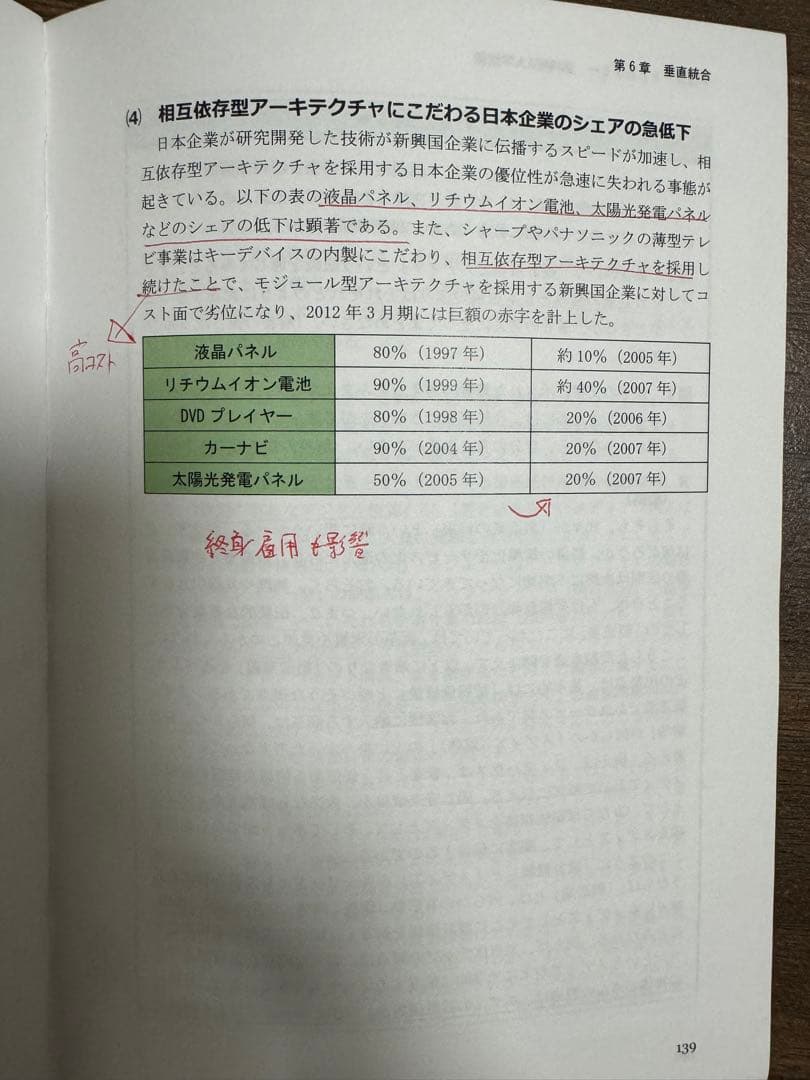 第6章 垂直統合
(4) 相互依存型アーキテクチャにこだわる日本企業のシェアの急低下
日本企業が研究開発した技術が新興国企業に伝播するスピードが加速し、相
互依存型アーキテクチャを採用する日本企業の優位性が急速に失われる事態が
起きている。以下の表の液晶パネル、リチウムイオン電池、太陽光発電パネル
などのシェアの低下は顕著である。また、シャープやパナソニックの薄型テレ
ビ事業はキーデバイスの内製にこだわり、相互依存型アーキテクチャを採用し
続けたことで、モジュール型アーキテクチャを採用する新興国企業に対してコ
スト面で劣位になり、2012年3月期には巨額の赤字を計上した。
高コスト
液晶パネル 80%(1997年) 約10%(2005年)
リチウムイオン電池 90%(1999年) 約40%(2007年)
DVDプレイヤー 80%(1998年) 20%(2006年)
カーナビ 90%(2004年) 20%(2007年)
太陽光発電パネル 50%(2005年) 20%(2007年)
終身雇用も影響
139